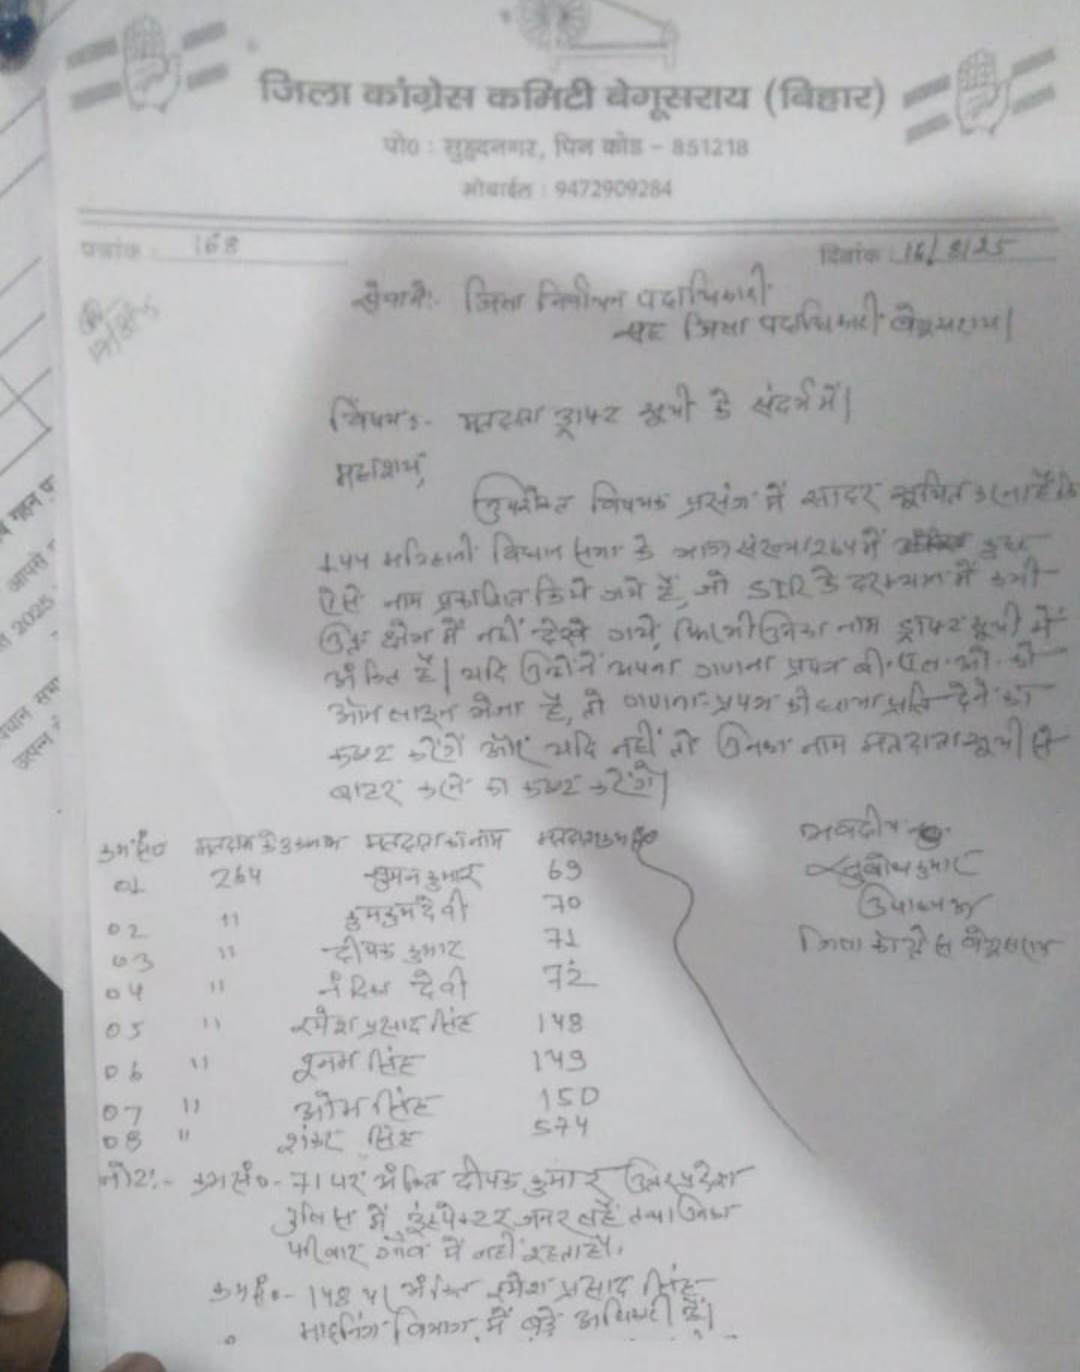 जिला कांग्रेस कमिटी बेगूसराय (बिहार)
पो० : सुहृदनगर, पिन कोड - 851218
मोबाईल : 9472909284
पत्रांक : 168
दिनांक : 16/8/25
सेवामें:- जिला निर्वाचन पदाधिकारी
सह जिला पदाधिकारी बेगूसराय।
विषय:- मतदाता ड्राफ्ट सूची के संदर्भ में।
महाशय,
उपरोक्त विषयक प्रसंग में सादर सूचित करना है कि
144 मटिहानी विधान सभा के भाग संख्या 264 में कुछ
ऐसे नाम प्रकाशित किये गये हैं, जो SIR के दरम्यान में कभी
उक्त क्षेत्र में नहीं देखे गये, फिर भी उनका नाम ड्राफ्ट सूची में
अंकित है। यदि उन्होंने अपना गणना प्रपत्र बी.एल.ओ. को
ऑनलाइन भेजा है, तो गणना-प्रपत्र की छाया प्रति देने का
कष्ट करेंगे और यदि नहीं तो उनका नाम मतदाता सूची से
बाहर करने का कष्ट करेंगे।
क्रम सं० मतदान केन्द्र मतदाता का नाम मतदाता क्रम सं०
01 264 सुमन कुमार 69
02 " कुमकुम देवी 70
03 " दीपक कुमार 71
04 " देवी 72
05 " रमेश प्रसाद सिंह 148
06 " पूनम सिंह 149
07 " ओम सिंह 150
08 " शंकर सिंह 574
भवदीय
सुबोध कुमार
उपाध्यक्ष
जिला कांग्रेस बेगूसराय
नोट:- क्रम सं०- 71 पर अंकित दीपक कुमार उत्तर प्रदेश
पुलिस में इंस्पेक्टर हैं तथा उनका
परिवार गाँव में नहीं रहता है।
क्रम सं०- 148 पर अंकित रमेश प्रसाद सिंह
माइनिंग विभाग में बड़े अधिकारी हैं।